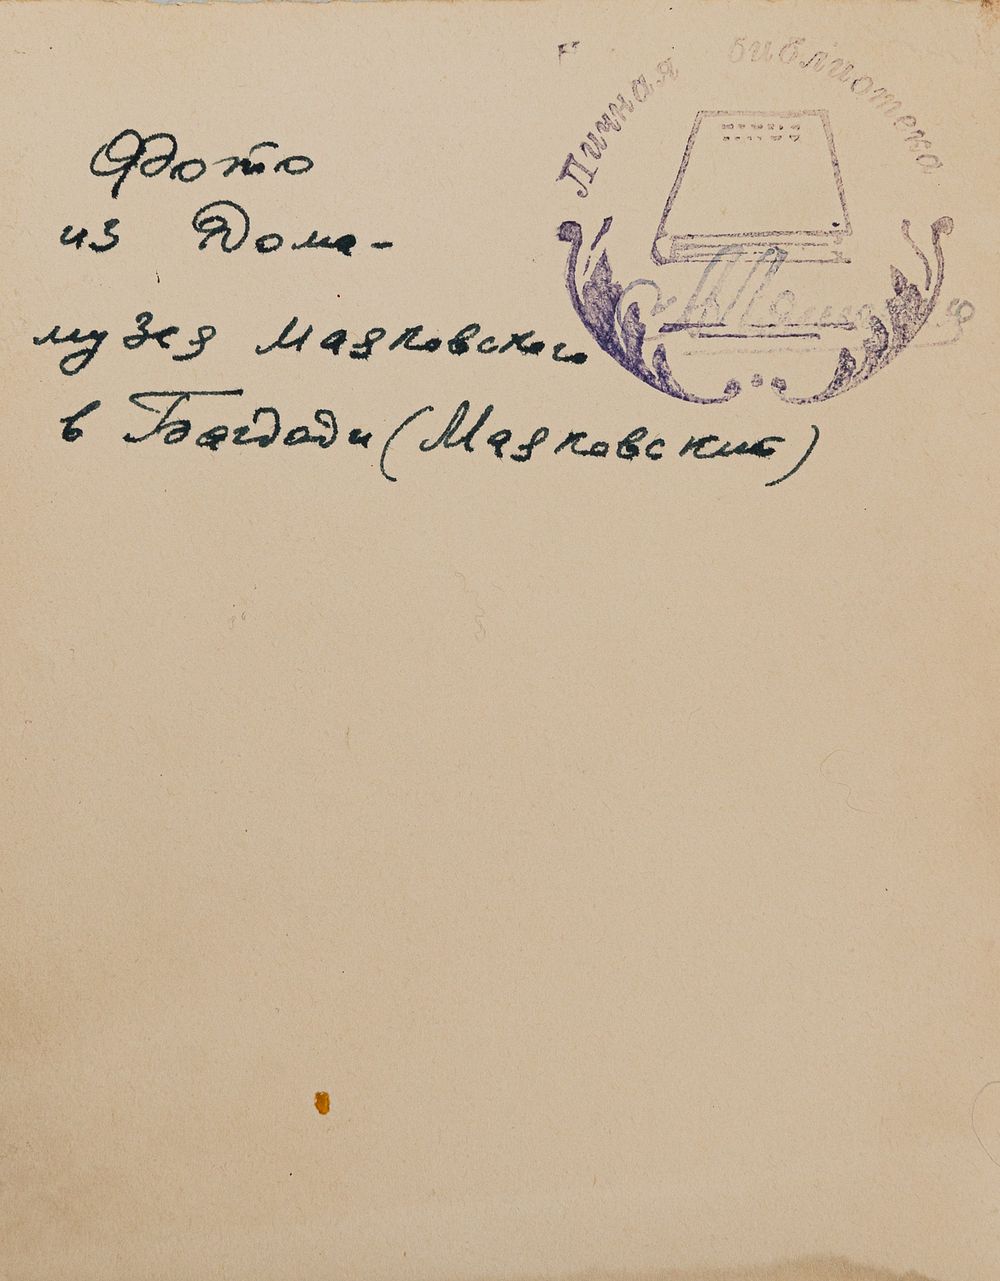 Личная библиотека
Фото
из Дома-
музея Маяковского
в Багдади (Маяковский)